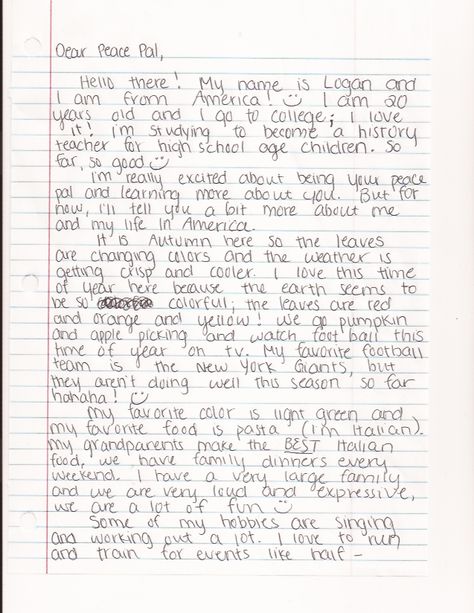 Dear Peace Pal,
Hello there! My name is Logan and
I am from America! I am 20
years old and I go to college; I love
it! I'm studying to become a history
teacher for high school age children. So
far, so good
I'm really excited about being your peace
pal and learning more about you. But for
now, I'll tell you a bit more about me
and my life in America.
It is Autumn here so the leaves
are changing colors and the weather is
getting crisp and cooler. I love this time
of year here because the earth seems to
be so colorful; the leaves are red
and orange and yellow! We go pumpkin
and apple picking and watch football this
time of year on tv. My favorite football
team is the New York Giants, but
they aren't doing well this season so far
hahaha!
My favorite color is light green and
my favorite food is pasta (I'm Italian).
My grandparents make the BEST Italian
food, we have family dinners every
weekend. I have a very large family
and we are very loud and expressive,
we are a lot of fun
Some of my hobbies are singing
and working out a lot. I love to run
and train for events like half-